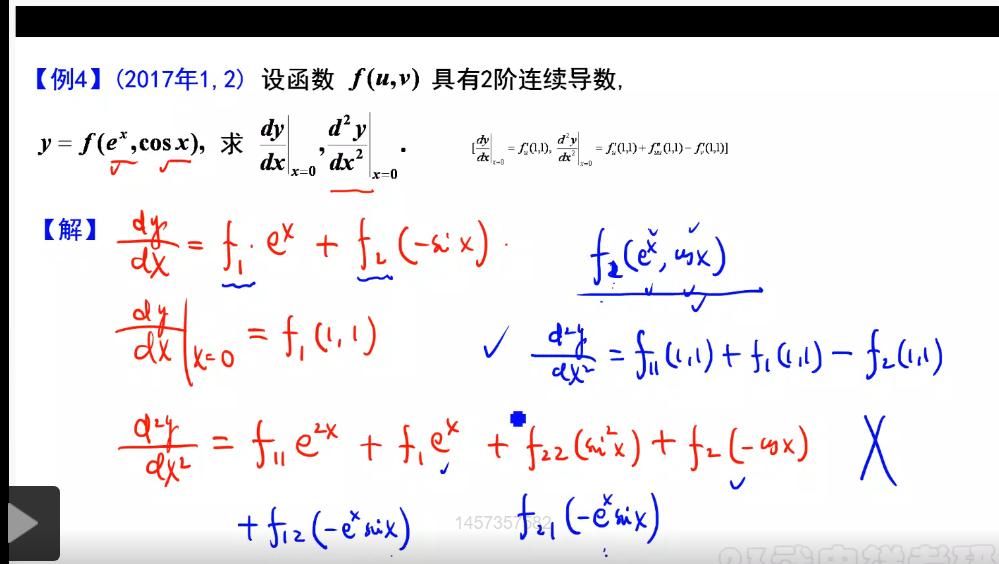 【例4】(2017年1,2) 设函数 f(u,v) 具有2阶连续导数,
y = f(e^x, cos x), 求 dy/dx|_{x=0}, d²y/dx²|_{x=0}.
[dy/dx|_{x=0} = f'_u(1,1), d²y/dx²|_{x=0} = f'_u(1,1) + f''_{uu}(1,1) − f'_v(1,1)]
【解】 dy/dx = f_1 · e^x + f_2 (−sin x).
f_2(e^x, cos x)
dy/dx|_{x=0} = f_1(1,1)
✓ d²y/dx² = f_11(1,1) + f_1(1,1) − f_2(1,1)
d²y/dx² = f_11 e^{2x} + f_1 e^x + f_22 (sin² x) + f_2 (−cos x) X
+ f_12 (−e^x sin x) f_21 (−e^x sin x)
1457357582